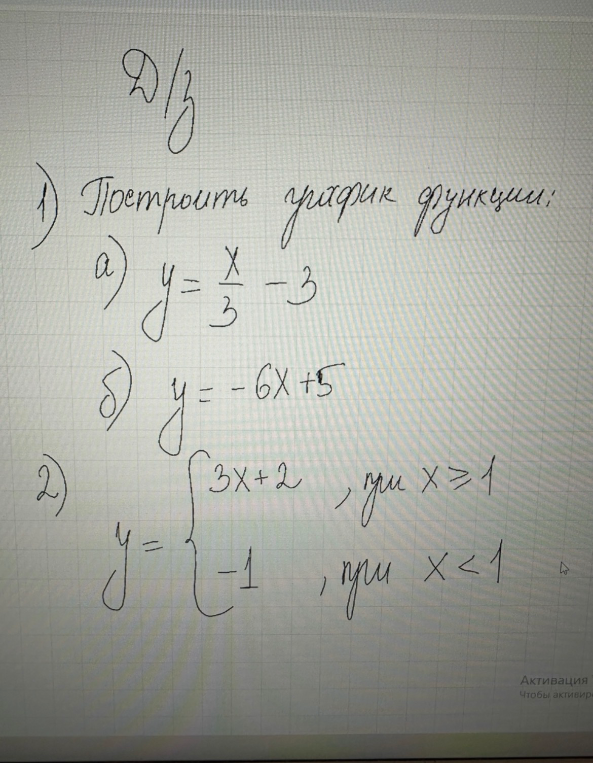 Д/з
1) Построить график функции:
а) y = x/3 - 3
б) y = -6x+5
2) y = { 3x+2 , при x ≥ 1
-1 , при x < 1
Активация
Чтобы активир